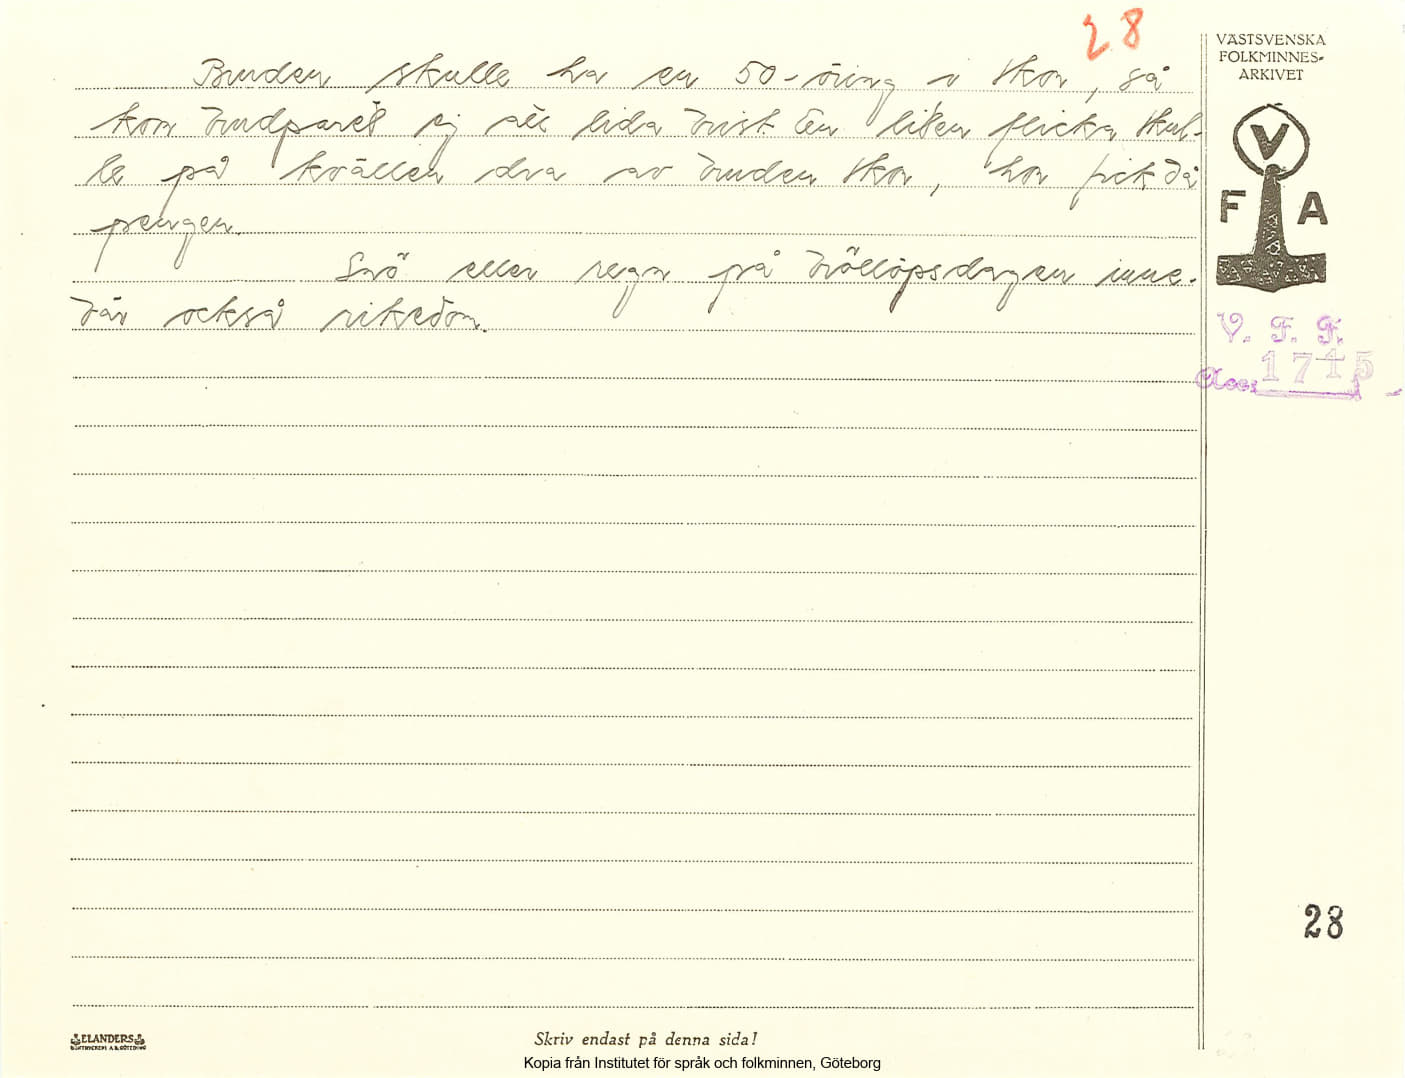 28
VÄSTSVENSKA
FOLKMINNES-
ARKIVET
V
F A
V. F. F.
Acc: 1745
Bruden skulle ha en 50-öring i skon, så
kom brudparet ej att lida brist. En liten flicka skul-
le på kvällen dra av bruden skon, hon fick då
pengen.
Snö eller regn på bröllopsdagen inne-
bär också rikedom.
28
ELANDERS
BOKTRYCKERI A.B. GÖTEBORG
Skriv endast på denna sida!
Kopia från Institutet för språk och folkminnen, Göteborg